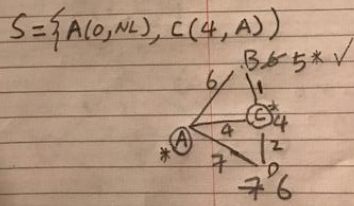 S={A(0,NL), C(4,A)}
B 6 5 * ✓
6
1
C * 4
4
* A
2
7
D
7 6